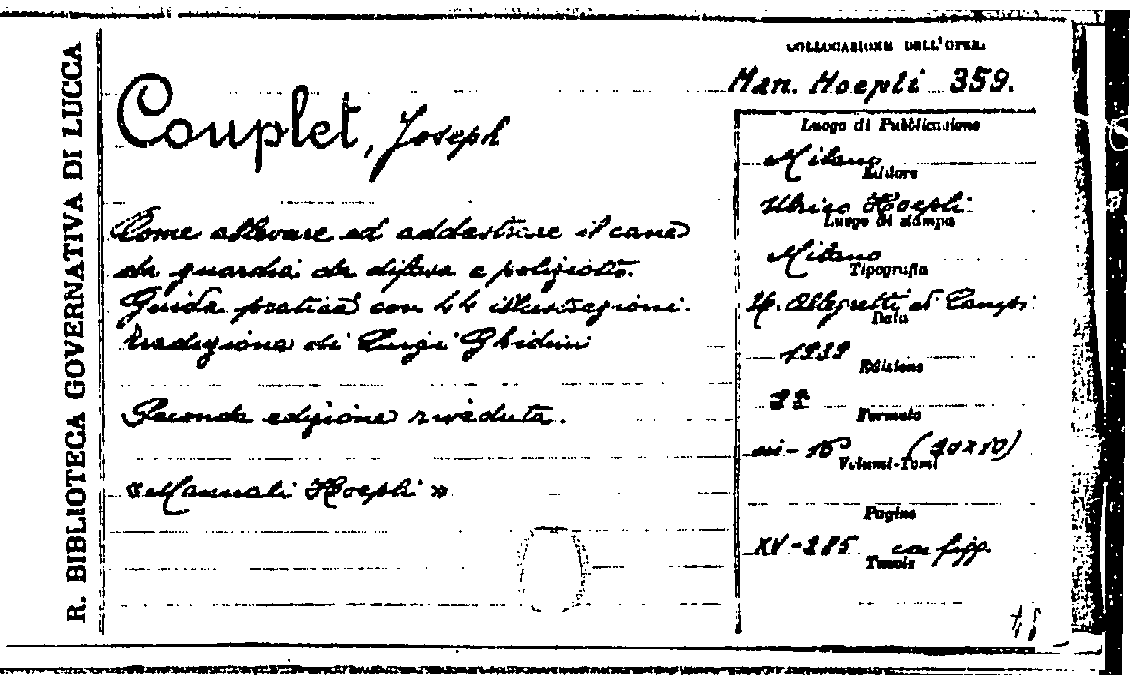 R. BIBLIOTECA GOVERNATIVA DI LUCCA
COLLOCAZIONE DELL'OPERA
Man. Hoepli 359.
Couplet, Joseph
Come allevare ed addestrare il cane
da guardia da difesa e poliziotto.
Guida pratica con 44 illustrazioni.
Traduzione di Luigi Ghidini
Seconda edizione riveduta.
«Manuali Hoepli»
Luogo di Pubblicazione
Milano
Editore
Ulrico Hoepli
Luogo di stampa
Milano
Tipografia
U. Allegretti di Campi
Data
Edizione
2ª
Formato
in-16° (10)
Volumi-Tomi
Pagine
XV-285 con figg.
Tavole